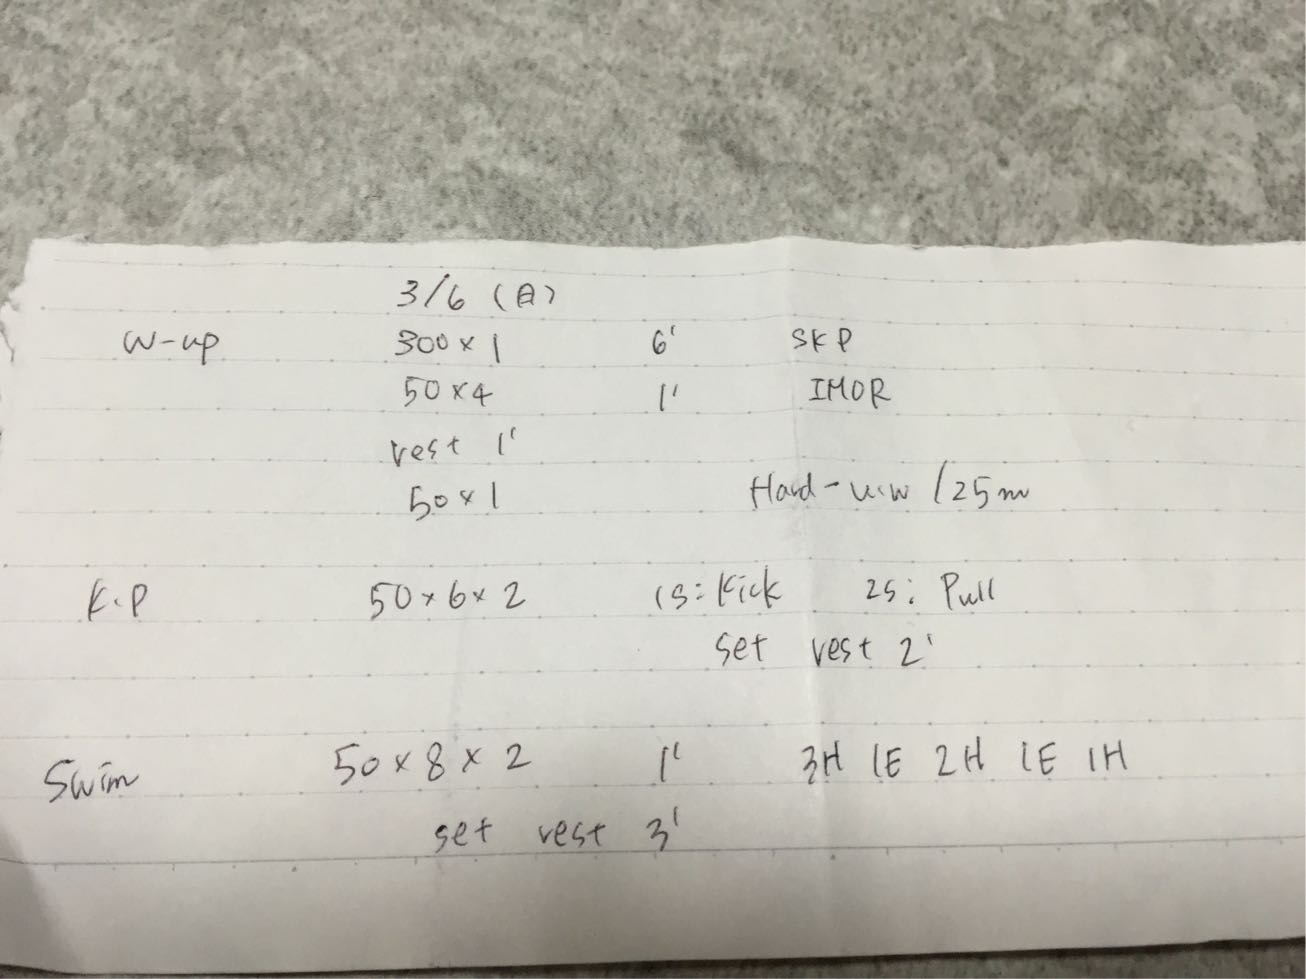 3/6 (日)
W-up 300×1 6' SKP
50×4 1' IMOR
rest 1'
50×1 Hard- /25m
K.P 50×6×2 1S: Kick 2S: Pull
set rest 2'
Swim 50×8×2 1' 3H 1E 2H 1E 1H
set rest 3'